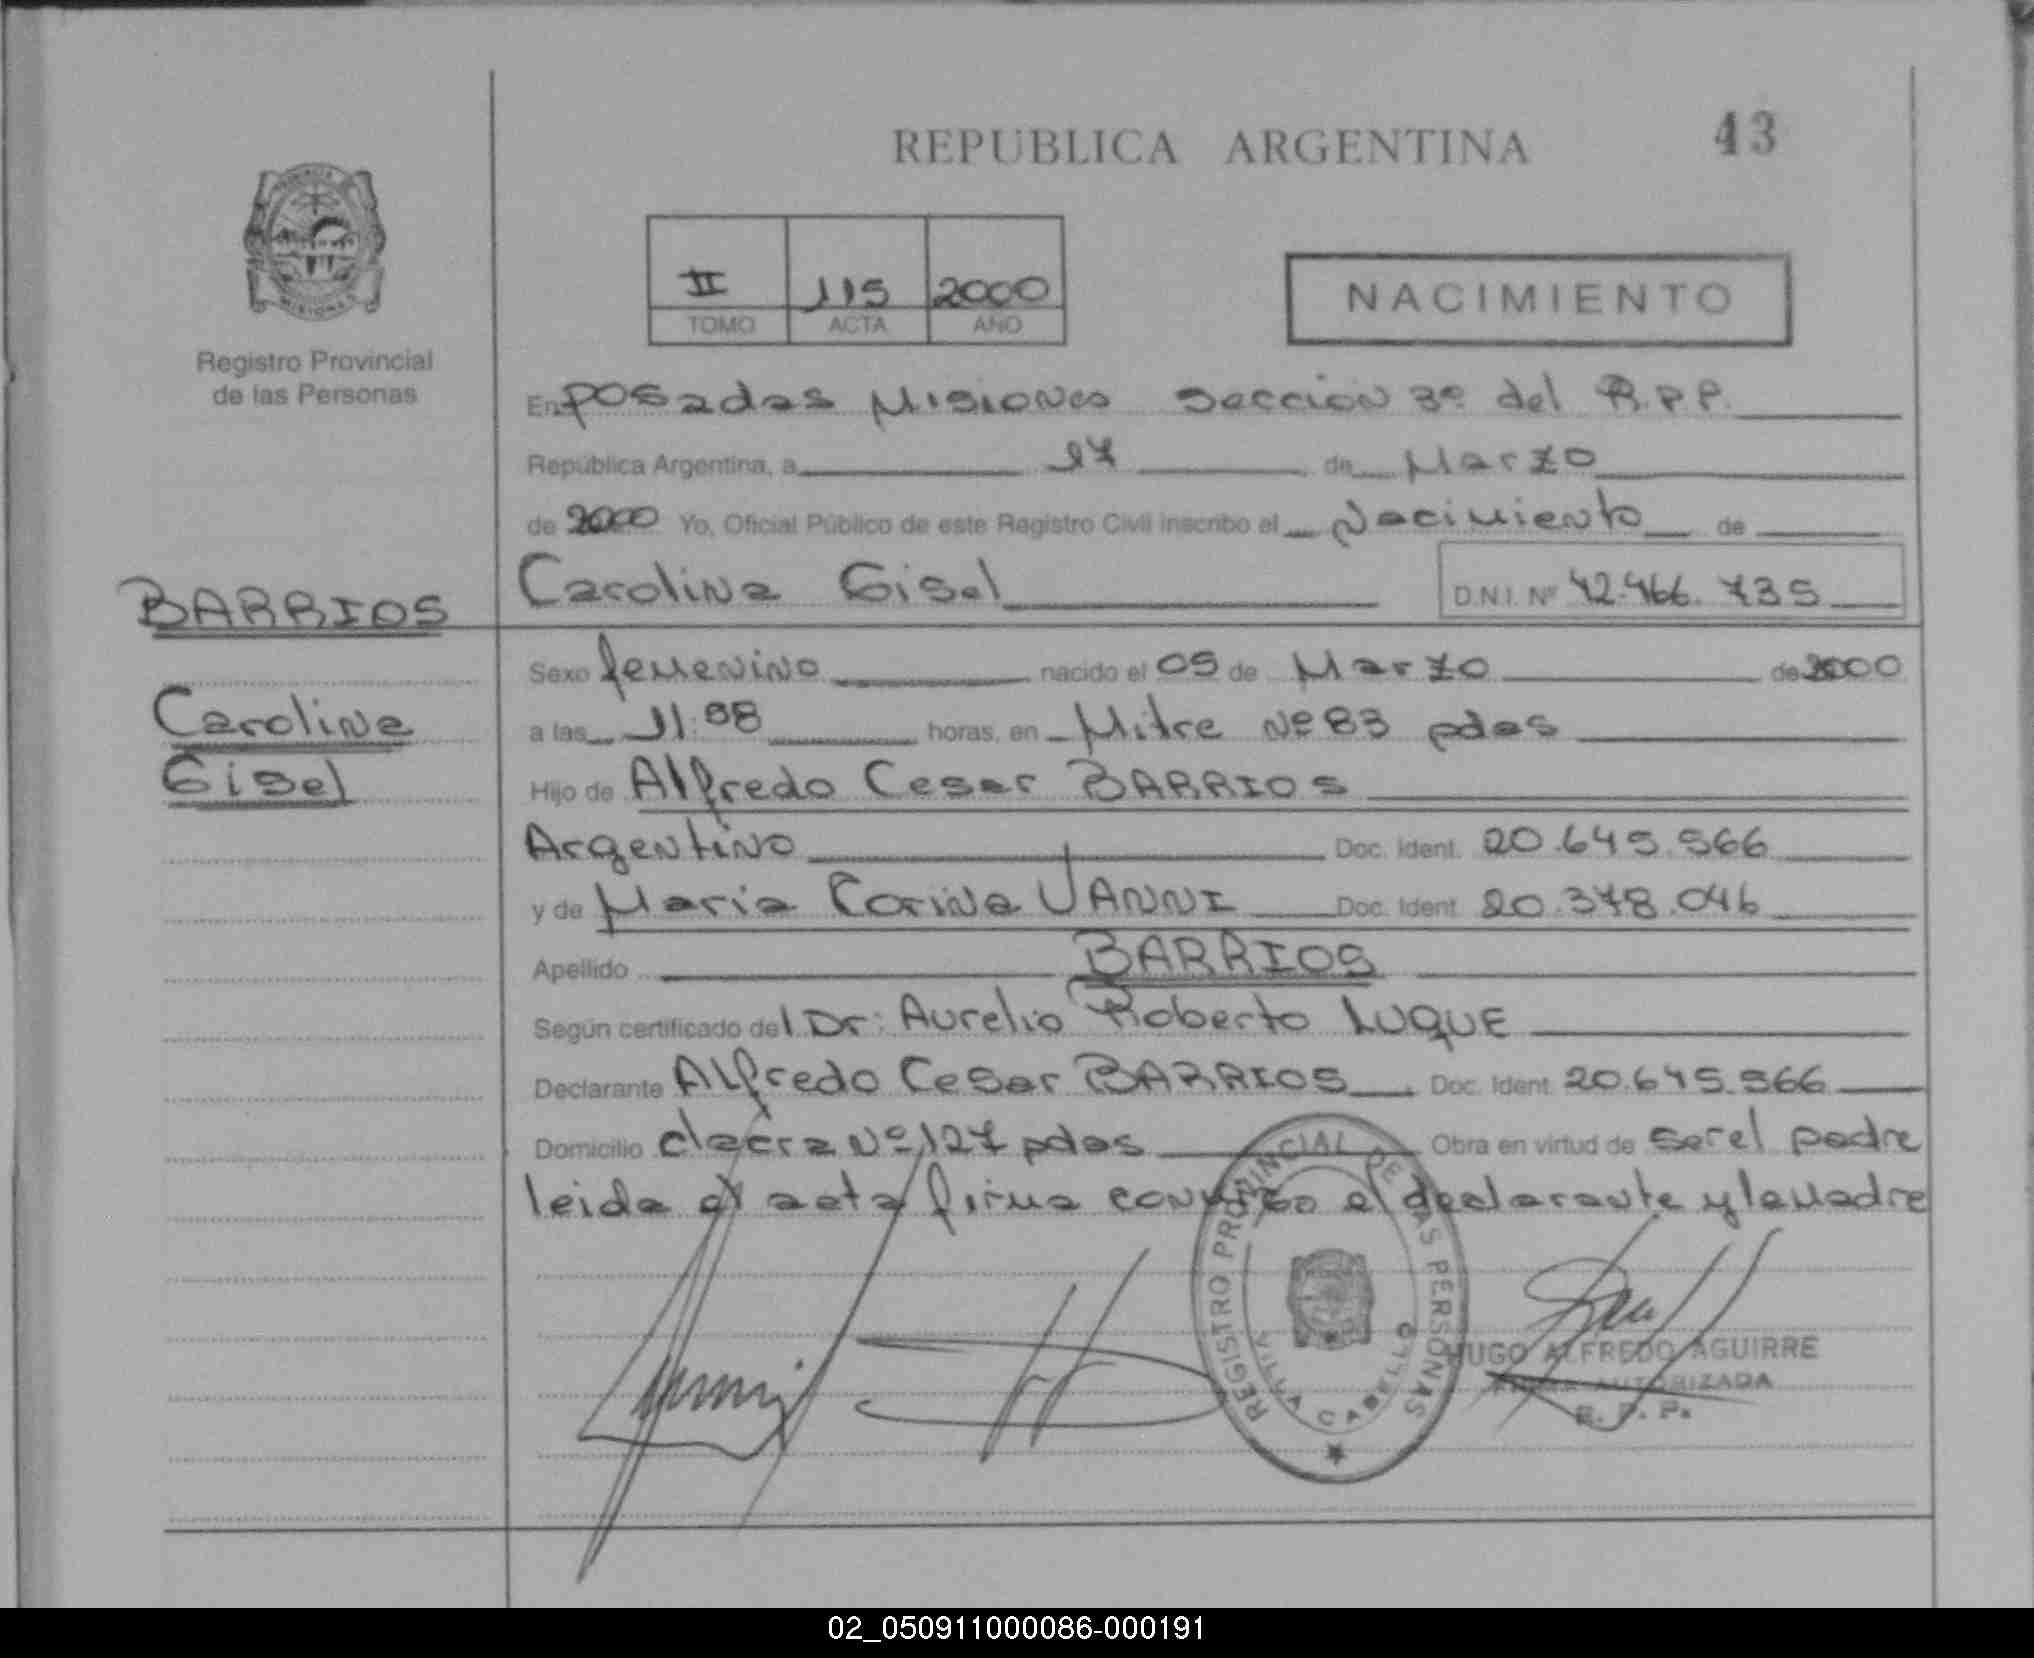 REPUBLICA ARGENTINA
43
PROVINCIA DE MISIONES
Registro Provincial
de las Personas
II 115 2000
TOMO ACTA AÑO
NACIMIENTO
En Posadas Misiones Sección 3º del R.P.P.
República Argentina, a 17 de Marzo
de 2000 Yo, Oficial Público de este Registro Civil inscribo el Nacimiento de
Carolina Gisel D.N.I. Nº 42.466.735
BARRIOS
Carolina
Gisel
Sexo femenino nacido el 05 de Marzo de 2000
a las 11:58 horas, en Mitre Nº 83 pdas
Hijo de Alfredo Cesar BARRIOS
Argentino Doc. Ident. 20.645.566
y de Maria Corina JANNI Doc. Ident. 20.378.046
Apellido BARRIOS
Según certificado del Dr: Aurelio Roberto LUQUE
Declarante Alfredo Cesar BARRIOS Doc. Ident. 20.645.566
Domicilio chacra Nº 127 pdas Obra en virtud de ser el padre
leida el acta firma conmigo el declarante y la madre
REGISTRO PROVINCIAL DE LAS PERSONAS
VILLA CABELLO
HUGO ALFREDO AGUIRRE
FIRMA AUTORIZADA
R. P. P.
02_050911000086-000191